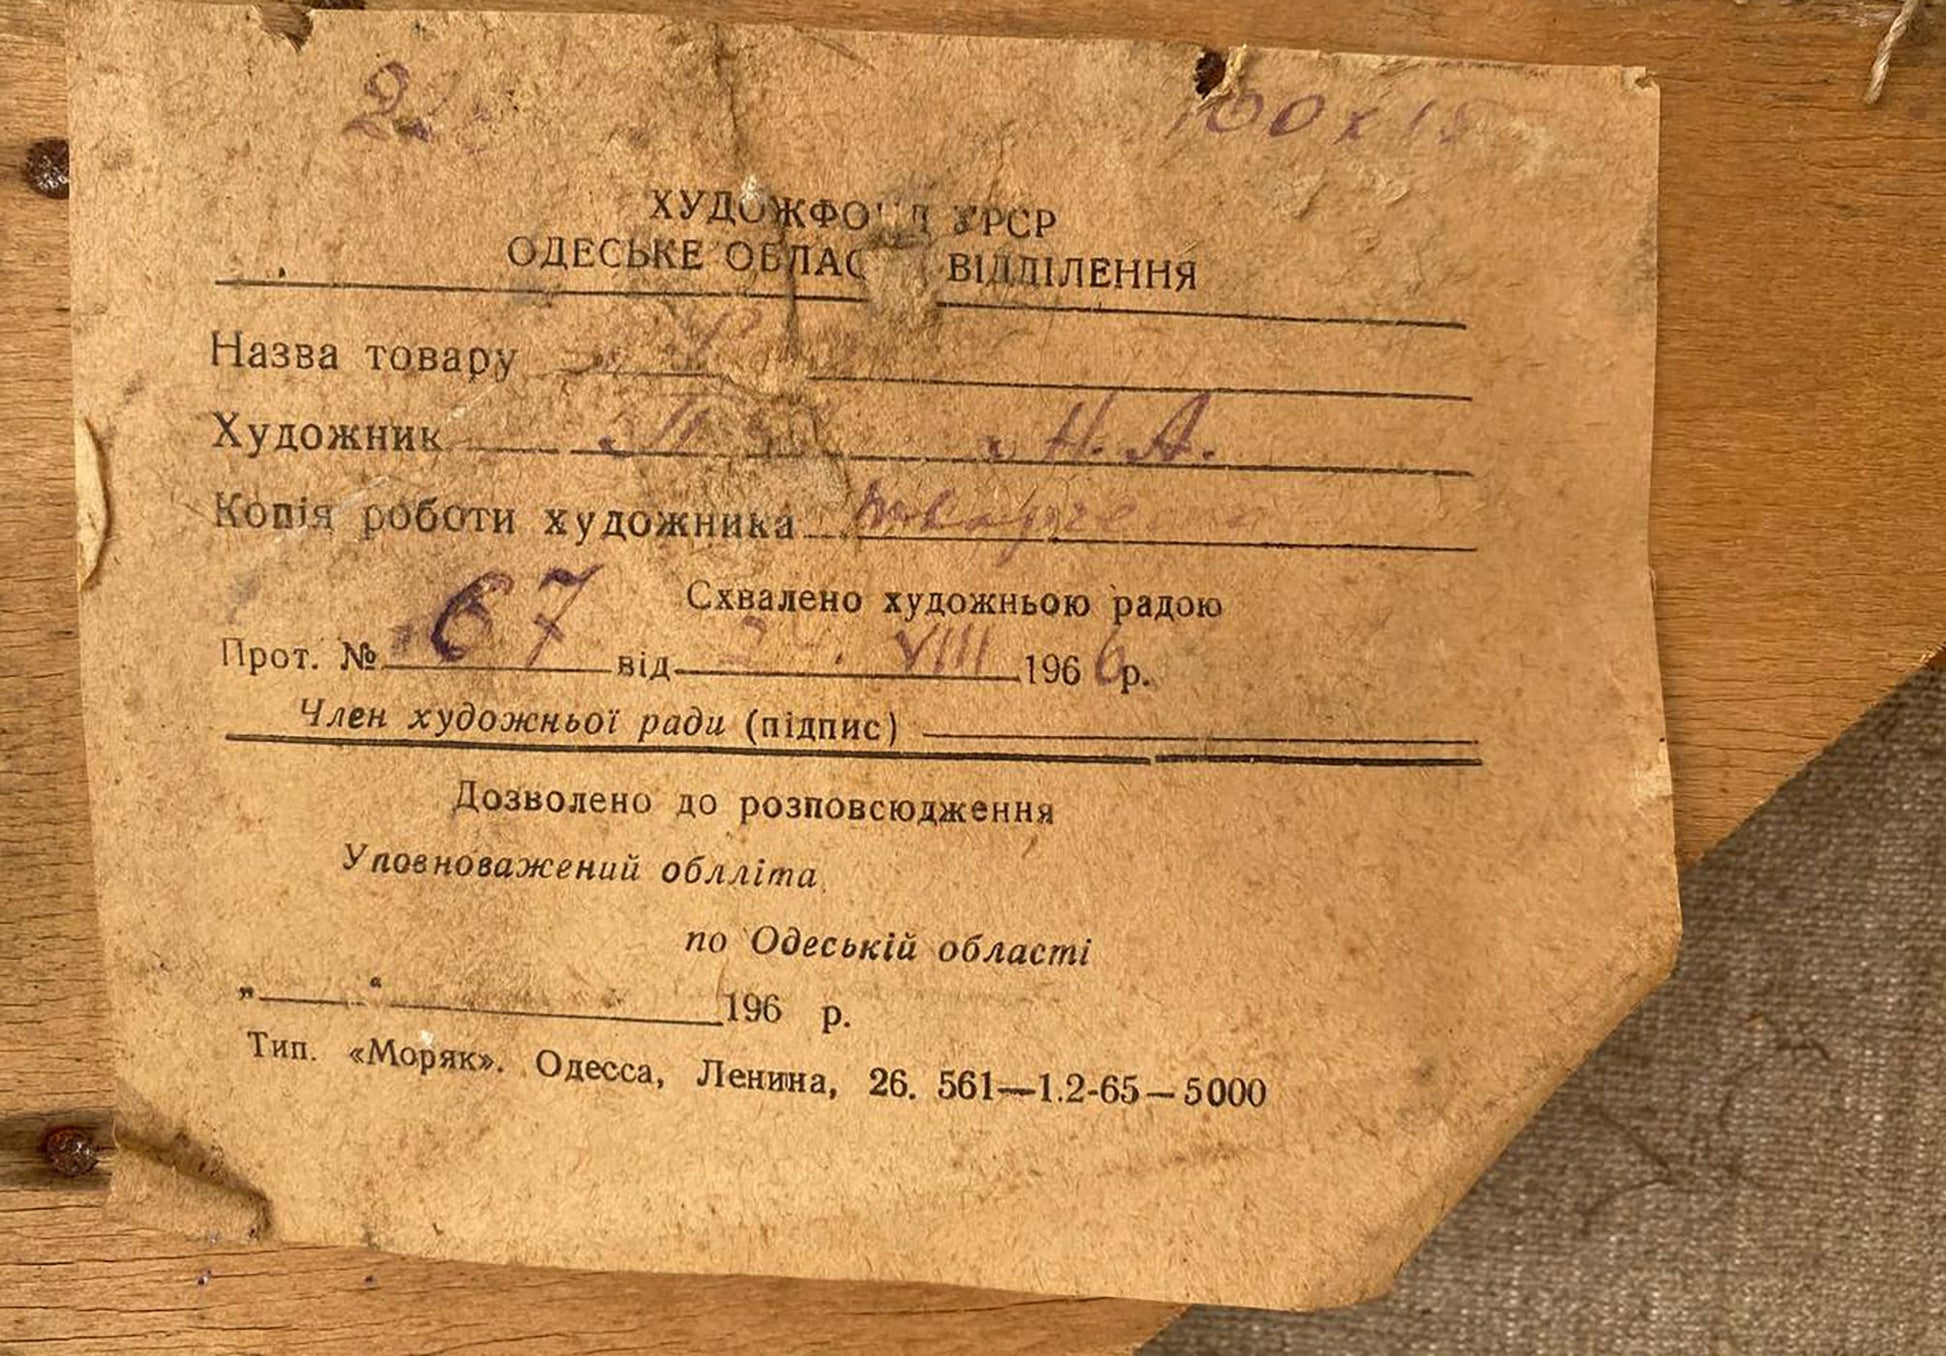 ХУДОЖФОНД УРСР
ОДЕСЬКЕ ОБЛАС ВІДДІЛЕННЯ
Назва товару
Художник Н. А.
Копія роботи художника
Схвалено художньою радою
Прот. № 67 від VIII 1966 р.
Член художньої ради (підпис)
Дозволено до розповсюдження
Уповноважений облліта
по Одеській області
„ “ 196 р.
Тип. «Моряк». Одесса, Ленина, 26. 561—1.2-65—5000